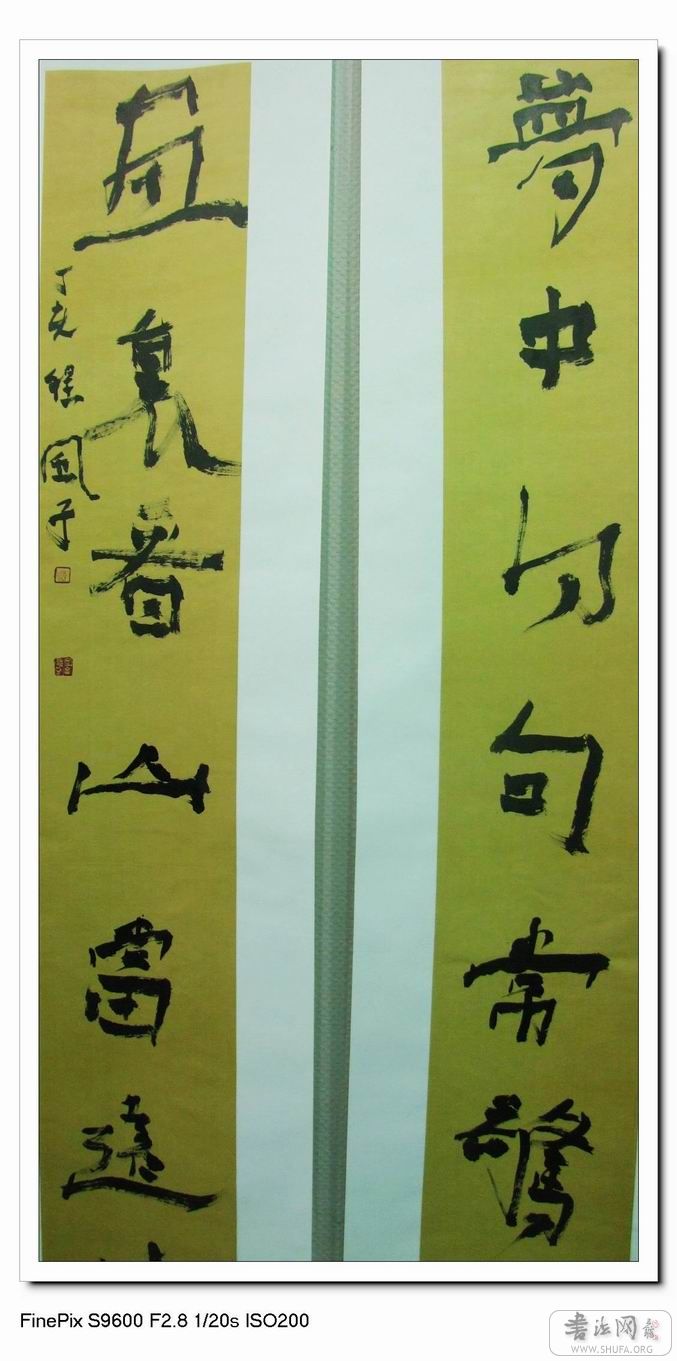 夢中句常驚
画裏看山當遠
丁亥
FinePix S9600 F2.8 1/20s ISO200
書法网
WWW.SHUFA.ORG